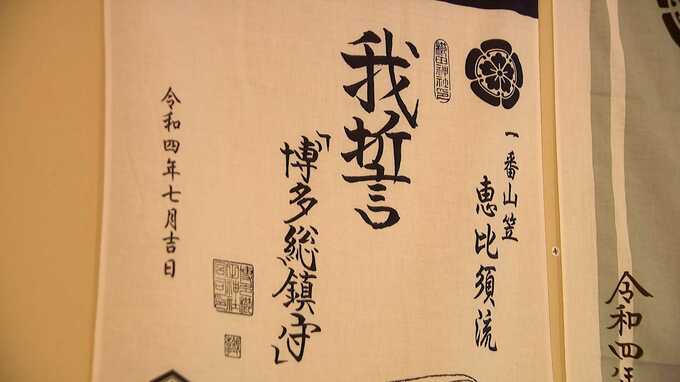 一番山笠
恵比須流
櫛田神社印
我誓
「博多総鎮守」
令和四年七月吉日
令和四年